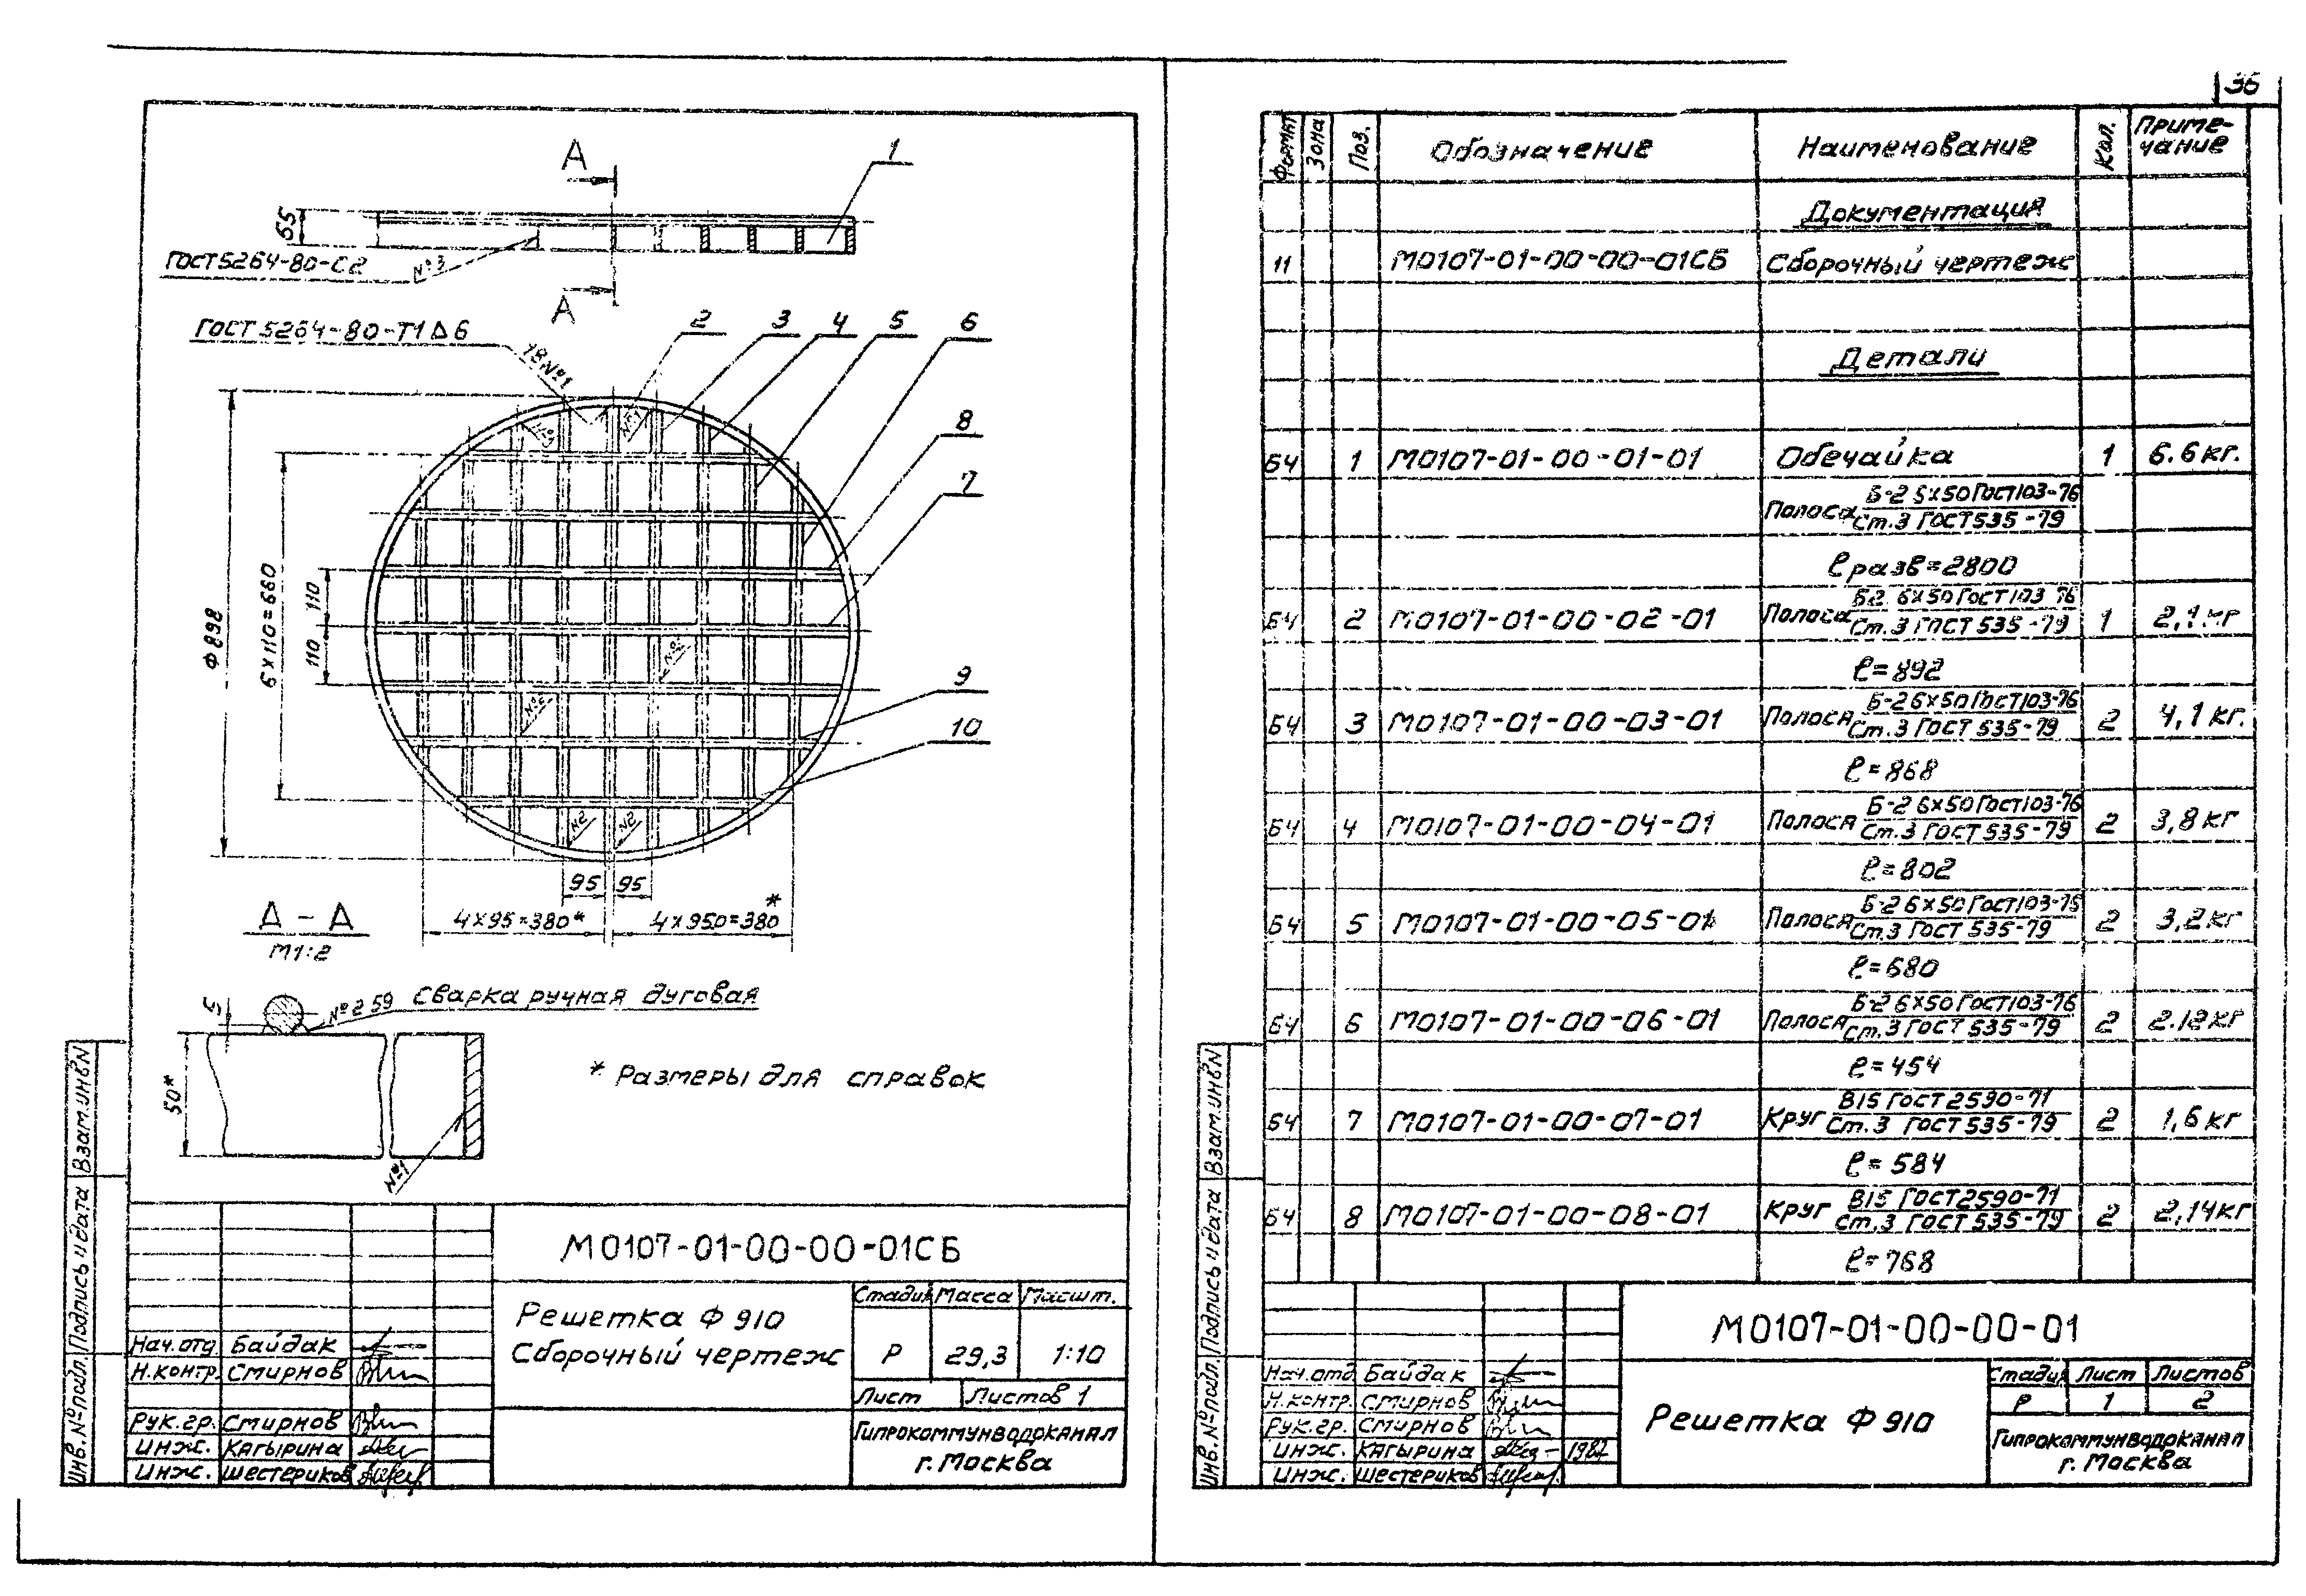 36
А
1
55
ГОСТ 5264-80-С2
№3
А
ГОСТ 5264-80-Т1 Δ 6
18№1
2
3
4
5
6
8
7
№1
№3
Ф 898
6×110=660
110
110
№2
№2
9
10
№2
№2
95
95
4×95=380*
4×950=380
*
А – А
М1:2
5
№2 59
Сварка ручная дуговая
50*
№1
* Размеры для справок
Взам.инв№
Подпись и дата
Инв.№подл.
М0107-01-00-00-01СБ
Решетка Ф 910
Сборочный чертеж
Стадия
Масса
Масшт.
Р
29,3
1:10
Лист
Листов 1
Гипрокоммунводоканал
г. Москва
Нач.отд. Байдак
Н.контр. Смирнов
Рук.гр. Смирнов
Инж. Кагырина
Инж. Шестериков
Формат
Зона
Поз.
Обозначение
Наименование
Кол.
Приме-
чание
Документация
11 М0107-01-00-00-01СБ Сборочный чертеж
Детали
БЧ 1 М0107-01-00-01-01 Обечайка 1 6.6 кг.
Полоса Б-2 5×50 Гост 103-76
Ст.3 ГОСТ 535-79
ℓ разв=2800
БЧ 2 М0107-01-00-02-01 Полоса Б2 6×50 Гост 103-76
Ст.3 ГОСТ 535-79 1 2,1 кг
ℓ=892
БЧ 3 М0107-01-00-03-01 Полоса Б-2 6×50 Гост 103-76
Ст.3 ГОСТ 535-79 2 4,1 кг.
ℓ=868
БЧ 4 М0107-01-00-04-01 Полоса Б-2 6×50 Гост 103-76
Ст.3 ГОСТ 535-79 2 3,8 кг
ℓ=802
БЧ 5 М0107-01-00-05-01 Полоса Б-2 6×50 Гост 103-76
Ст.3 ГОСТ 535-79 2 3,2 кг
ℓ=680
БЧ 6 М0107-01-00-06-01 Полоса Б-2 6×50 Гост 103-76
Ст.3 ГОСТ 535-79 2 2.12 кг
ℓ=454
БЧ 7 М0107-01-00-07-01 Круг В15 ГОСТ 2590-71
Ст.3 ГОСТ 535-79 2 1,6 кг
ℓ=584
БЧ 8 М0107-01-00-08-01 Круг В15 ГОСТ 2590-71
Ст.3 ГОСТ 535-79 2 2,14 кг
ℓ=768
Взам.инв№
Подпись и дата
Инв.№подл.
М0107-01-00-00-01
Решетка Ф 910
Стадия
Лист
Листов
Р
1
2
Гипрокоммунводоканал
г. Москва
Нач.отд. Байдак
Н.контр. Смирнов
Рук.гр. Смирнов
Инж. Кагырина 1987
Инж. Шестериков